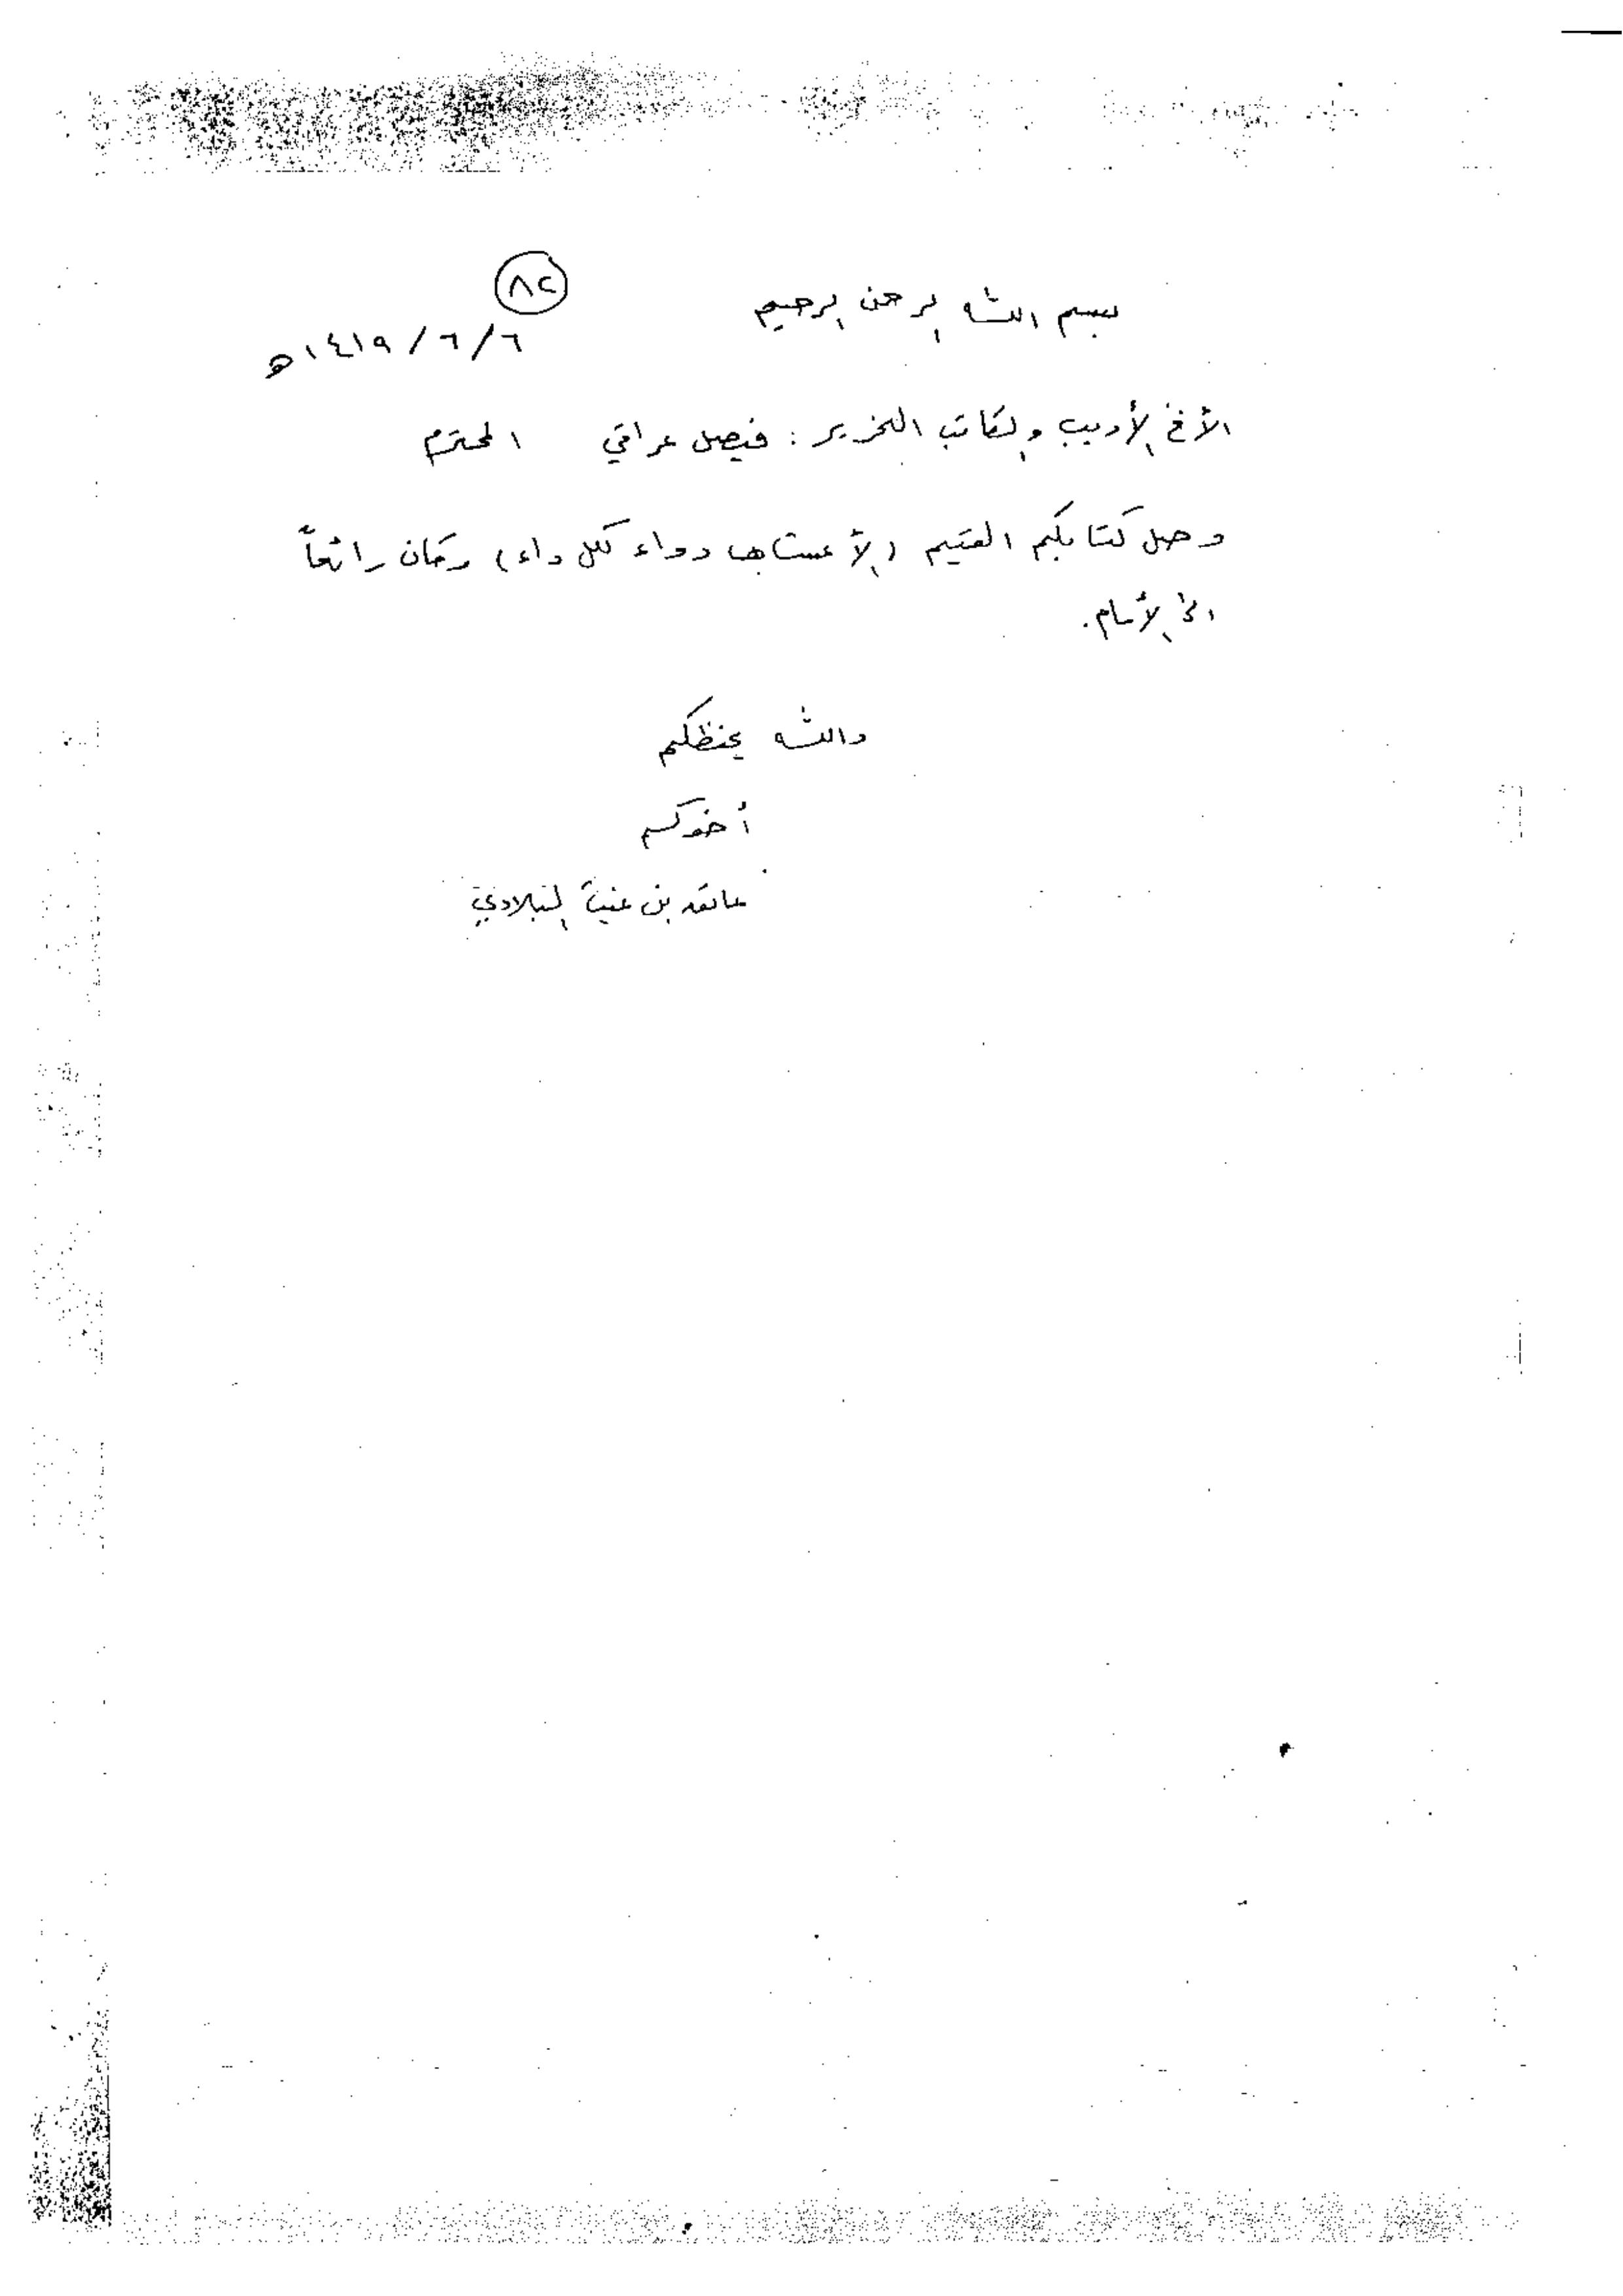 ٨٢
بسم الله الرحمن الرحيم
٦/٦/١٤١٩هـ
الأخ الأديب والكاتب النحرير: فيصل عراقي المحترم
وصل كتابكم القيم (الأعشاب دواء لكل داء) وكان رائعاً
الى الأمام.
والله يحفظكم
أخوكم
عاتق بن غيث البلادي